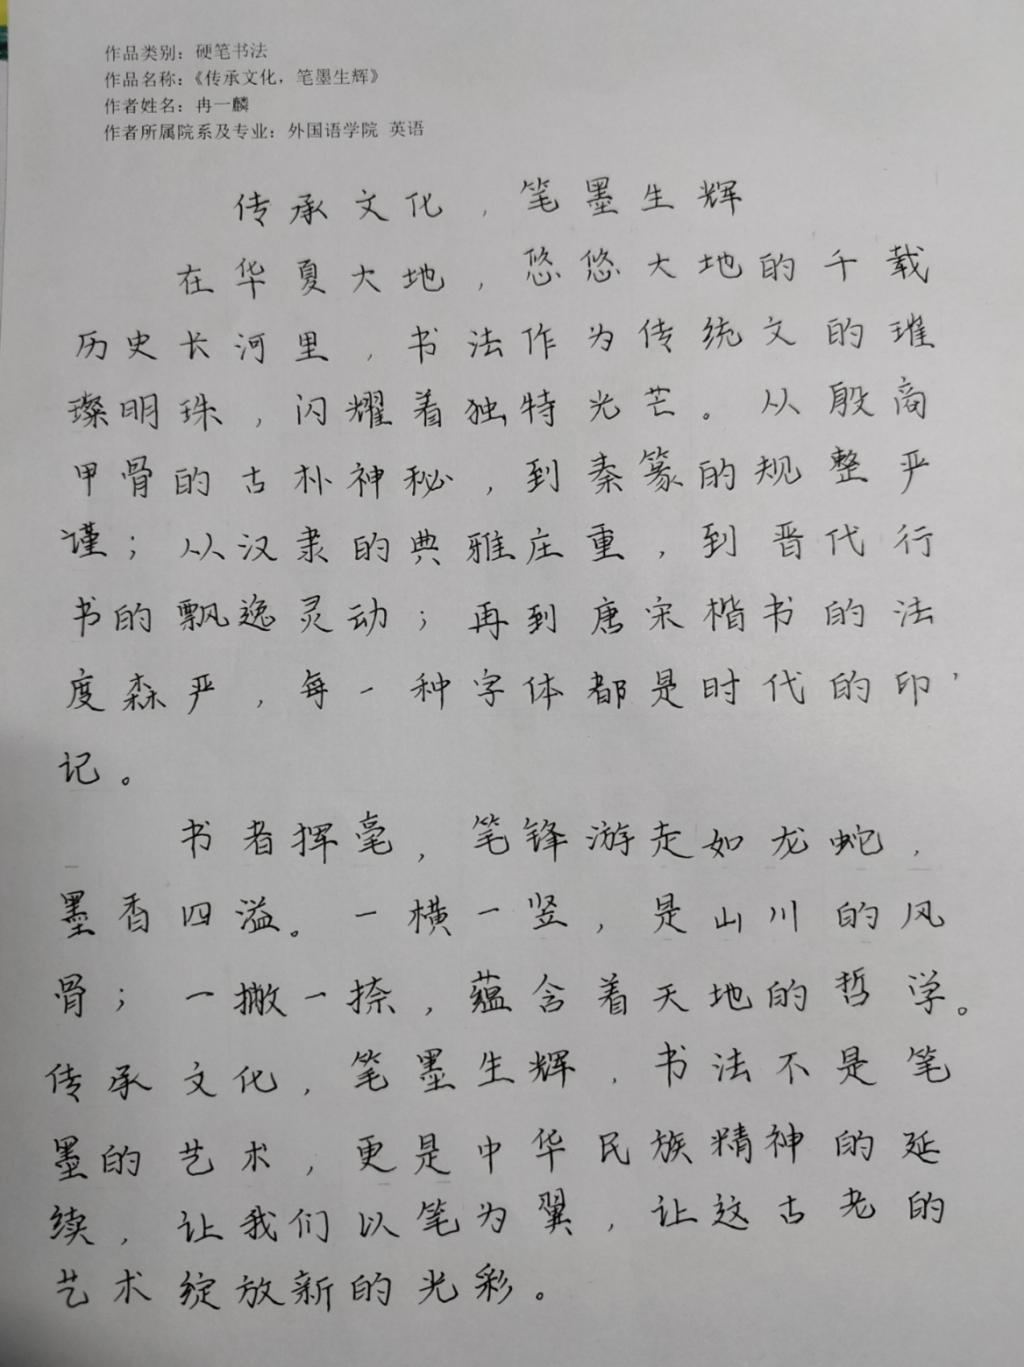 作品类别：硬笔书法
作品名称：《传承文化，笔墨生辉》
作者姓名：冉一麟
作者所属院系及专业：外国语学院 英语
传承文化，笔墨生辉
在华夏大地，悠悠大地的千载
历史长河里，书法作为传统文的璀
璨明珠，闪耀着独特光芒。从殷商
甲骨的古朴神秘，到秦篆的规整严
谨；从汉隶的典雅庄重，到晋代行
书的飘逸灵动；再到唐宋楷书的法
度森严，每一种字体都是时代的印，
记。
书者挥毫，笔锋游走如龙蛇，
墨香四溢。一横一竖，是山川的风
骨；一撇一捺，蕴含着天地的哲学。
传承文化，笔墨生辉，书法不是笔
墨的艺术，更是中华民族精神的延
续，让我们以笔为翼，让这古老的
艺术绽放新的光彩。